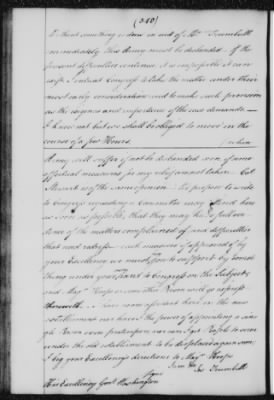 (240)
If that something is done in aid of Mr. Trumbull
immediately this Army must be disbanded. If the
present difficulties continue, it is impossible it can
exist. I entreat Congress to take the matter under their
most early consideration and to make such provision
as the urgency and importance of the case demands
I know not but we shall be obliged to move in the
course of a few Hours.
Army will suffer if not be disbanded soon if some
effectual measures for my relief are not taken. Col.
Stewart is of the same opinion. He proposes to write
to Congress requesting a Committee may attend here
as soon as possible, that they may have full evi-
dence of the matters complained of and difficulties
that need redress such measure if approved of by
your Excellency we must for you to support by some
thing under your Hand to Congress on the Subject,
and Majr. Hoops or some other Person will go express
therewith. I have some assistant here in the new
establishment nor have I the power of appointing a sin-
gle Person even pro tempore nor can I get People to serve
under the old establishment to be displaced again soon,
I beg your Excellency's directions to Majr. Hoops
I am &c.
Jos. Trumbull
His Excellency Genl. Washington